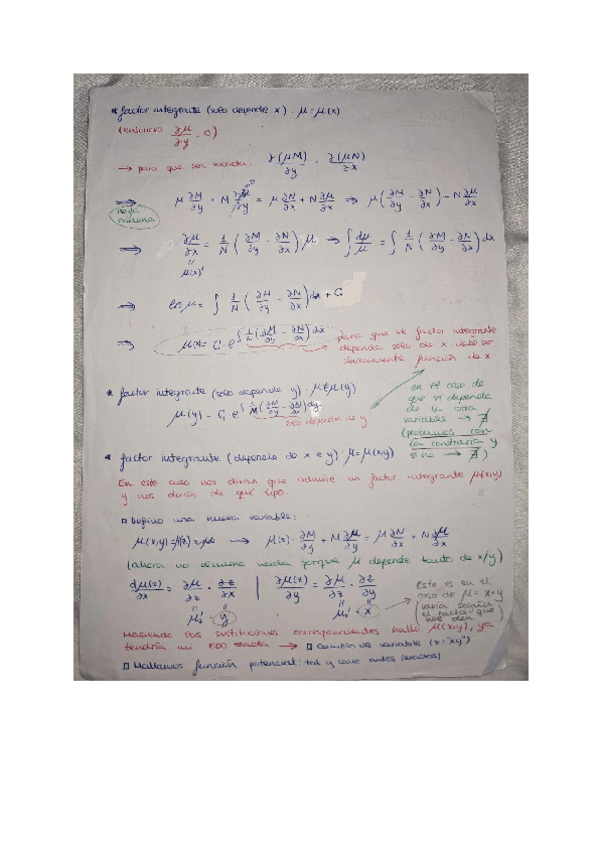 * factor integrante (solo depende x) : μ = μ(x)
(entonces ∂μ/∂y = 0)
→ para que sea exacta: ∂(μM)/∂y = ∂(μN)/∂x
⇒ μ ∂M/∂y + M ∂μ/∂y = μ ∂N/∂x + N ∂μ/∂x ⇒ μ(∂M/∂y - ∂N/∂x) = N ∂μ/∂x
regla
⇒ ∂μ/∂x = 1/N (∂M/∂y - ∂N/∂x) μ ⇒ ∫ dμ/μ = ∫ 1/N (∂M/∂y - ∂N/∂x) dx
μ(x)'
⇒ ln μ = ∫ 1/N (∂M/∂y - ∂N/∂x) dx + C
⇒ μ(x) = C · e^∫ 1/N (∂M/∂y - ∂N/∂x) dx
para que el factor integrante
dependa solo de x, debe ser
únicamente función de x
* factor integrante (solo depende y) : μ = μ(y)
μ(y) = C e^∫ 1/M (∂M/∂y - ∂N/∂x) dy
solo depende y
en el caso de
que si dependa
de la otra
variable → ∄
(probamos con
la contraria y
si no → ∄)
* factor integrante (depende de x e y) : μ = μ(x,y)
En este caso nos dirán que admite un factor integrante μ(x,y)
y nos dirán de qué tipo.
□ Defino una nueva variable:
μ(x,y) = μ(z) = → μ(z) · ∂M/∂y + M ∂μ/∂y = μ ∂N/∂x + N ∂μ/∂x
(ahora no elimino nada porque μ depende tanto de x/y)
dμ(z)/∂x = ∂μ/∂z · ∂z/∂x | ∂μ(z)/∂y = ∂μ/∂z · ∂z/∂y
μ' y μ' x
Esto es en el
caso de μ = x·y
(varía según
el factor que
nos den)
Haciendo las sustituciones correspondientes hallo μ(x,y), ya
tendría mi EDO exacta → □ Cambio de variable (z = "xy")
□ Hallamos función potencial: tal y como antes (exactas)